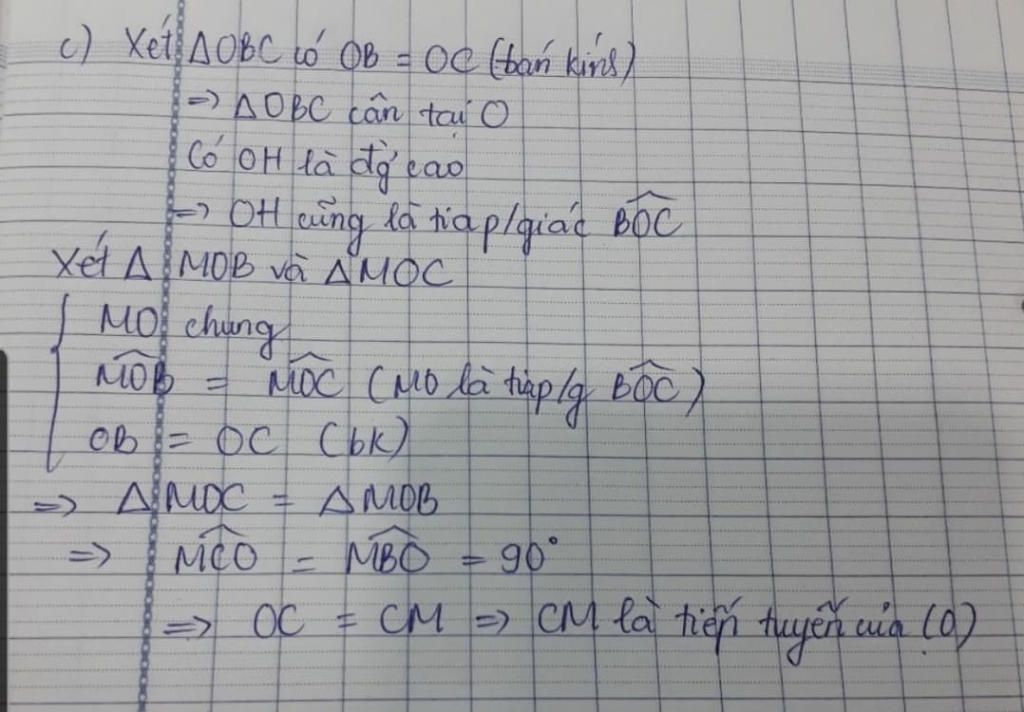 c) Xét ΔOBC có OB = OC (bán kính)
=> ΔOBC cân tại O
Có OH là đg cao
=> OH cũng là tia p/giác \widehat{BOC}
Xét Δ MOB và ΔMOC
MO chung
\widehat{MOB} = \widehat{MOC} (MO là tia p/g \widehat{BOC})
OB = OC (bk)
=> ΔMOC = ΔMOB
=> \widehat{MCO} = \widehat{MBO} = 90°
=> OC = CM => CM là tiếp tuyến của (O)